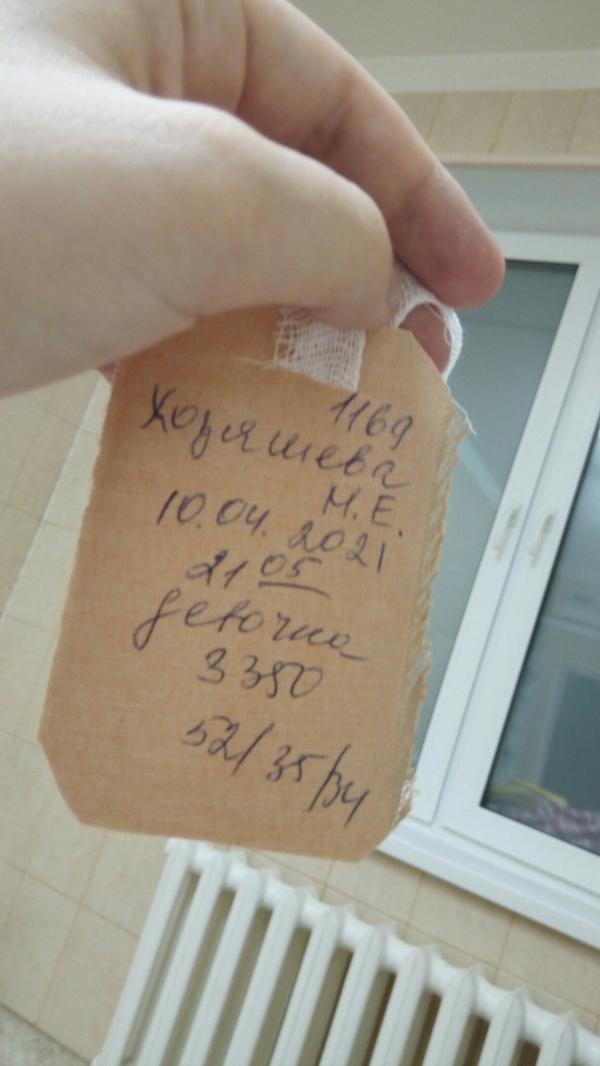 1169
Хозяшева
М.Е.
10.04.2021
21 05
девочка
3350
52/35/34